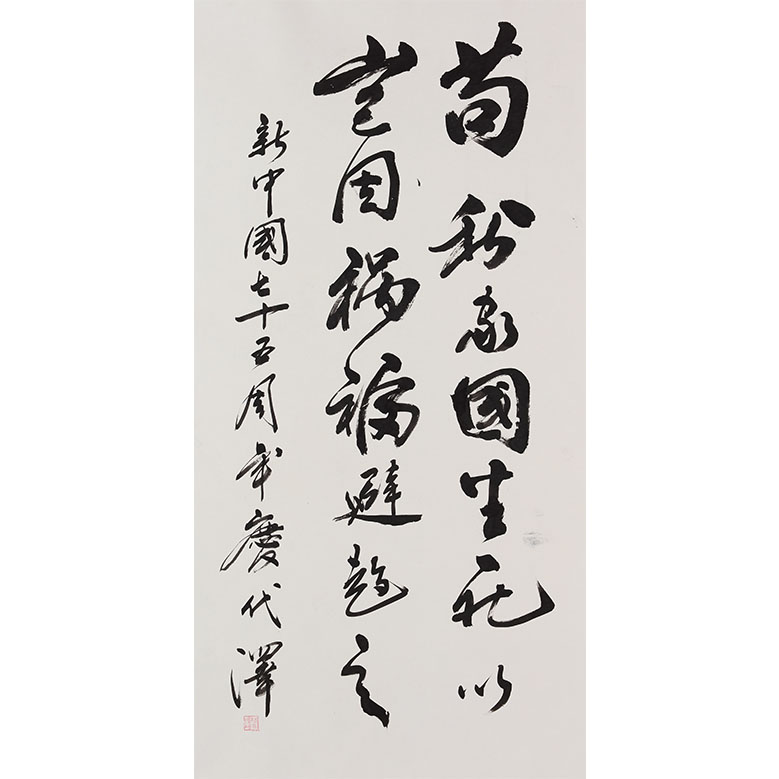 苟利家國生死以
豈因禍福避趨之
新中國七十五周年慶代澤